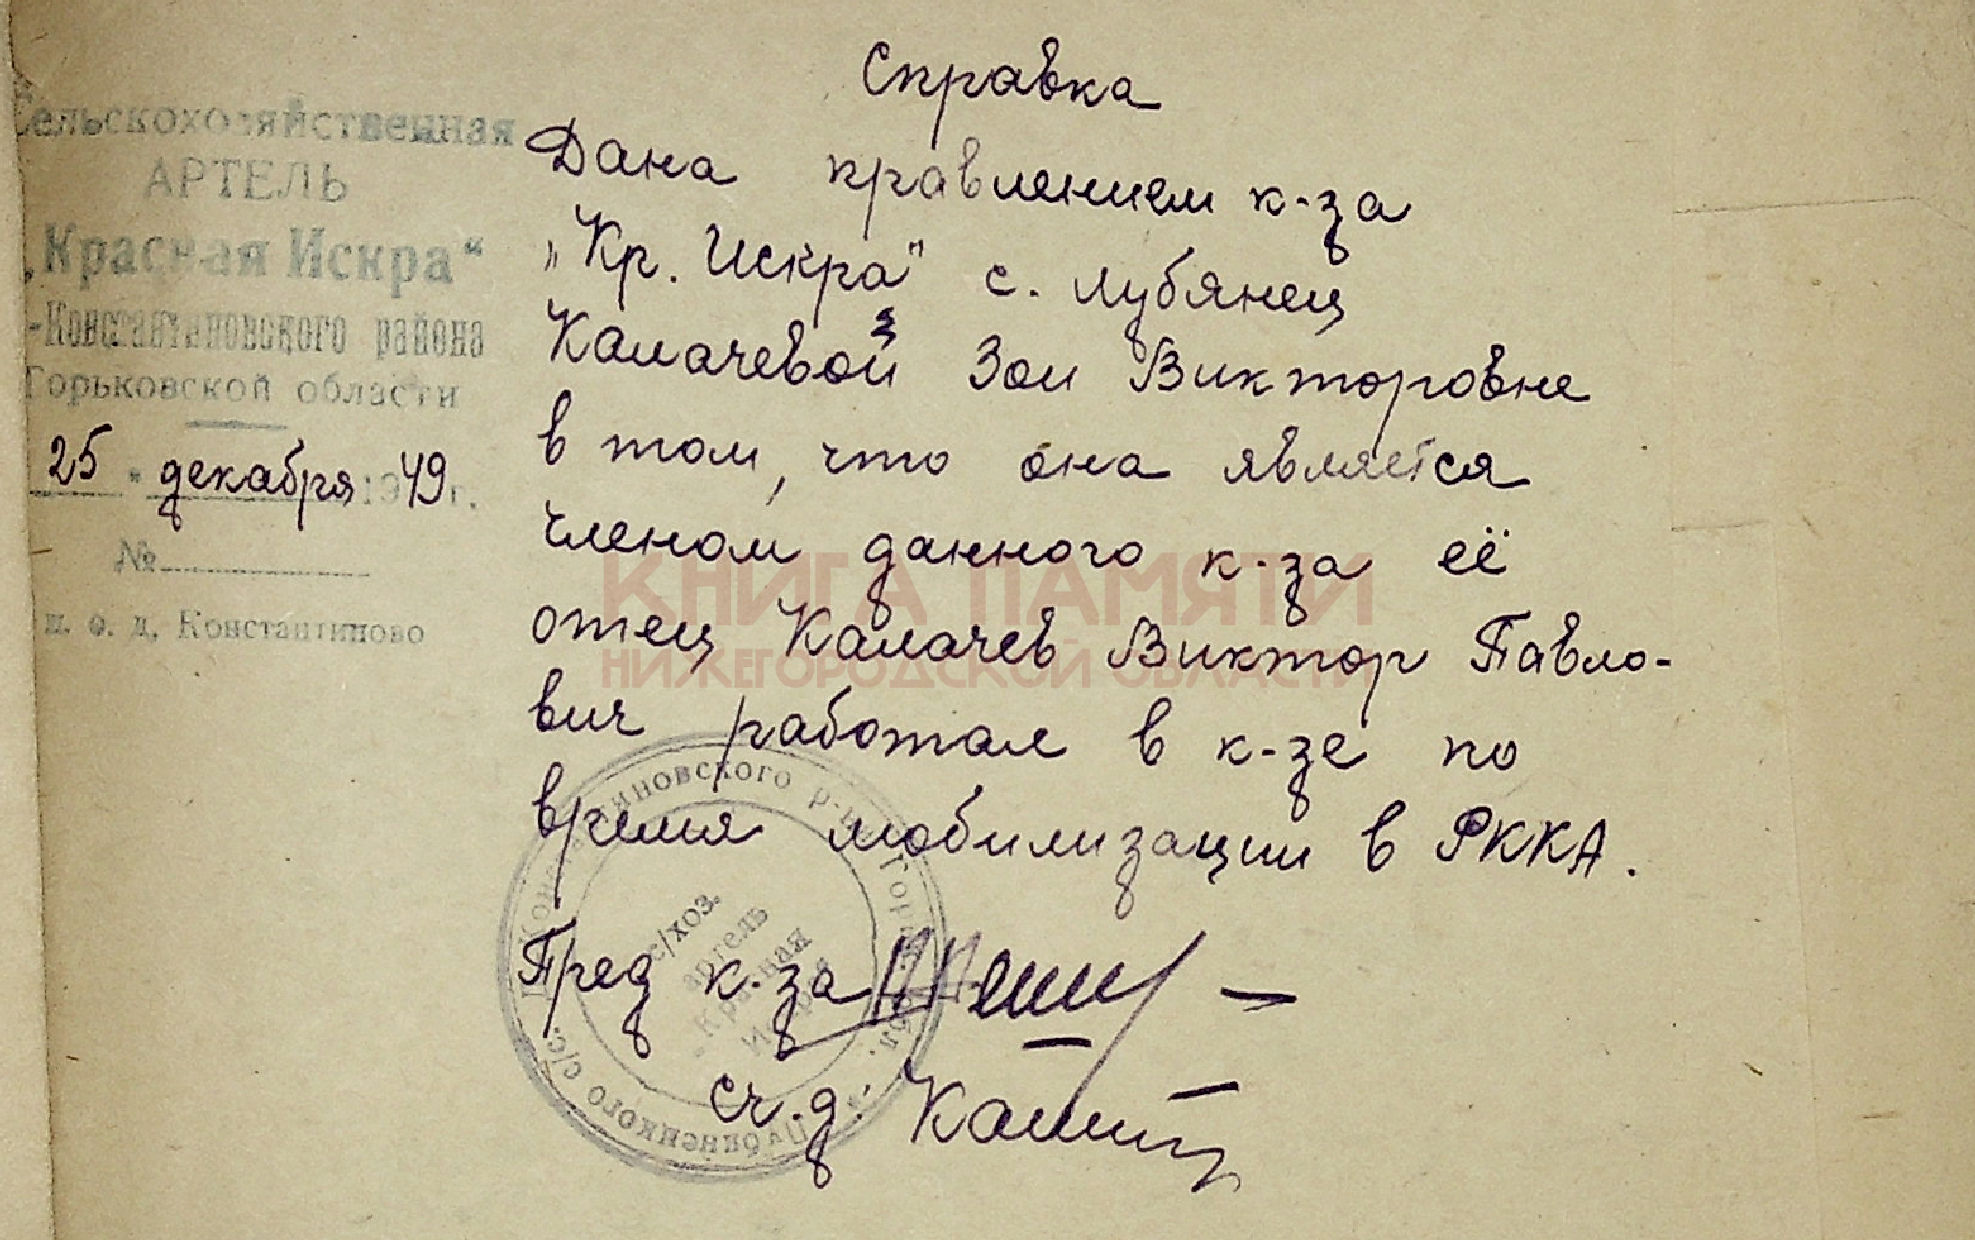 Справка
Сельскохозяйственная
АРТЕЛЬ
„Красная Искра“
-Константиновского района
Горьковской области
25 " декабря 1949 г.
№
п. о. Д. Константиново
Дана правлением к-за
„Кр. Искра" с. Лубянец
Калачевой Зои Викторовне
в том, что она является
членом данного к-за её
отец Калачев Виктор Павло-
вич работал в к-зе по
время мобилизации в РККА.
Пред к-за
сч.д.
КНИГА ПАМЯТИ
НИЖЕГОРОДСКОЙ ОБЛАСТИ
с/хоз.
артель
Красная
Лубянецкого с/с.